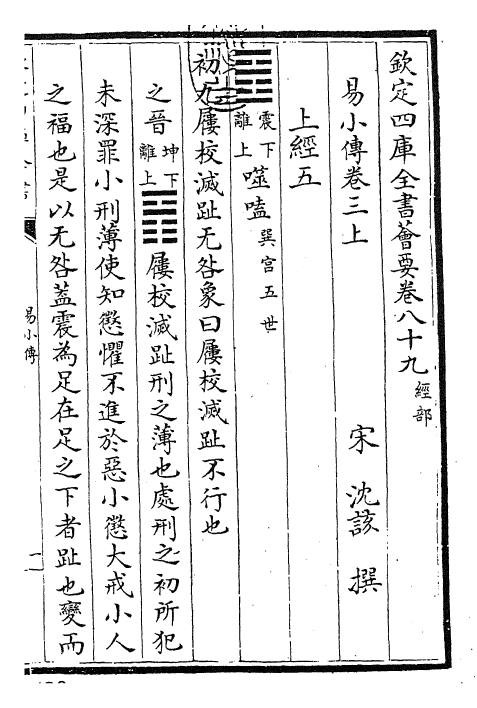 欽定四庫全書薈要卷八十九 經部
易小傳卷三上
宋 沈該 撰
上經五
震下
離上
噬嗑 巽宮五世
初九屨校滅趾无咎象曰屨校滅趾不行也
之晉 坤下
離上
屨校滅趾刑之薄也處刑之初所犯
未深罪小刑薄使知懲懼不進於惡小懲大戒小人
之福也是以无咎蓋震為足在足之下者趾也變而
易小傳
一